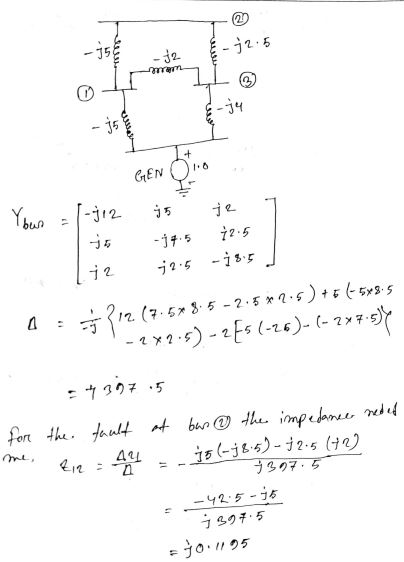 ②
-j5
-j2
-j2.5
①
③
-j5
-j4
+
GEN 1.0
-
Ybus = [ -j12 j5 j2
j5 -j7.5 j2.5
j2 j2.5 -j8.5 ]
Δ = 1/-j { 12 (7.5×8.5 - 2.5×2.5) + 5 (-5×8.5
-2×2.5) - 2[-5(-2.5) - (-2×7.5)}
= j397.5
for the fault at bus ② the impedances
me, Z12 = Δ21/Δ = - j5(-j8.5) - j2.5 (j2) / j397.5
= -42.5 - j5 / j397.5
= j0.1195